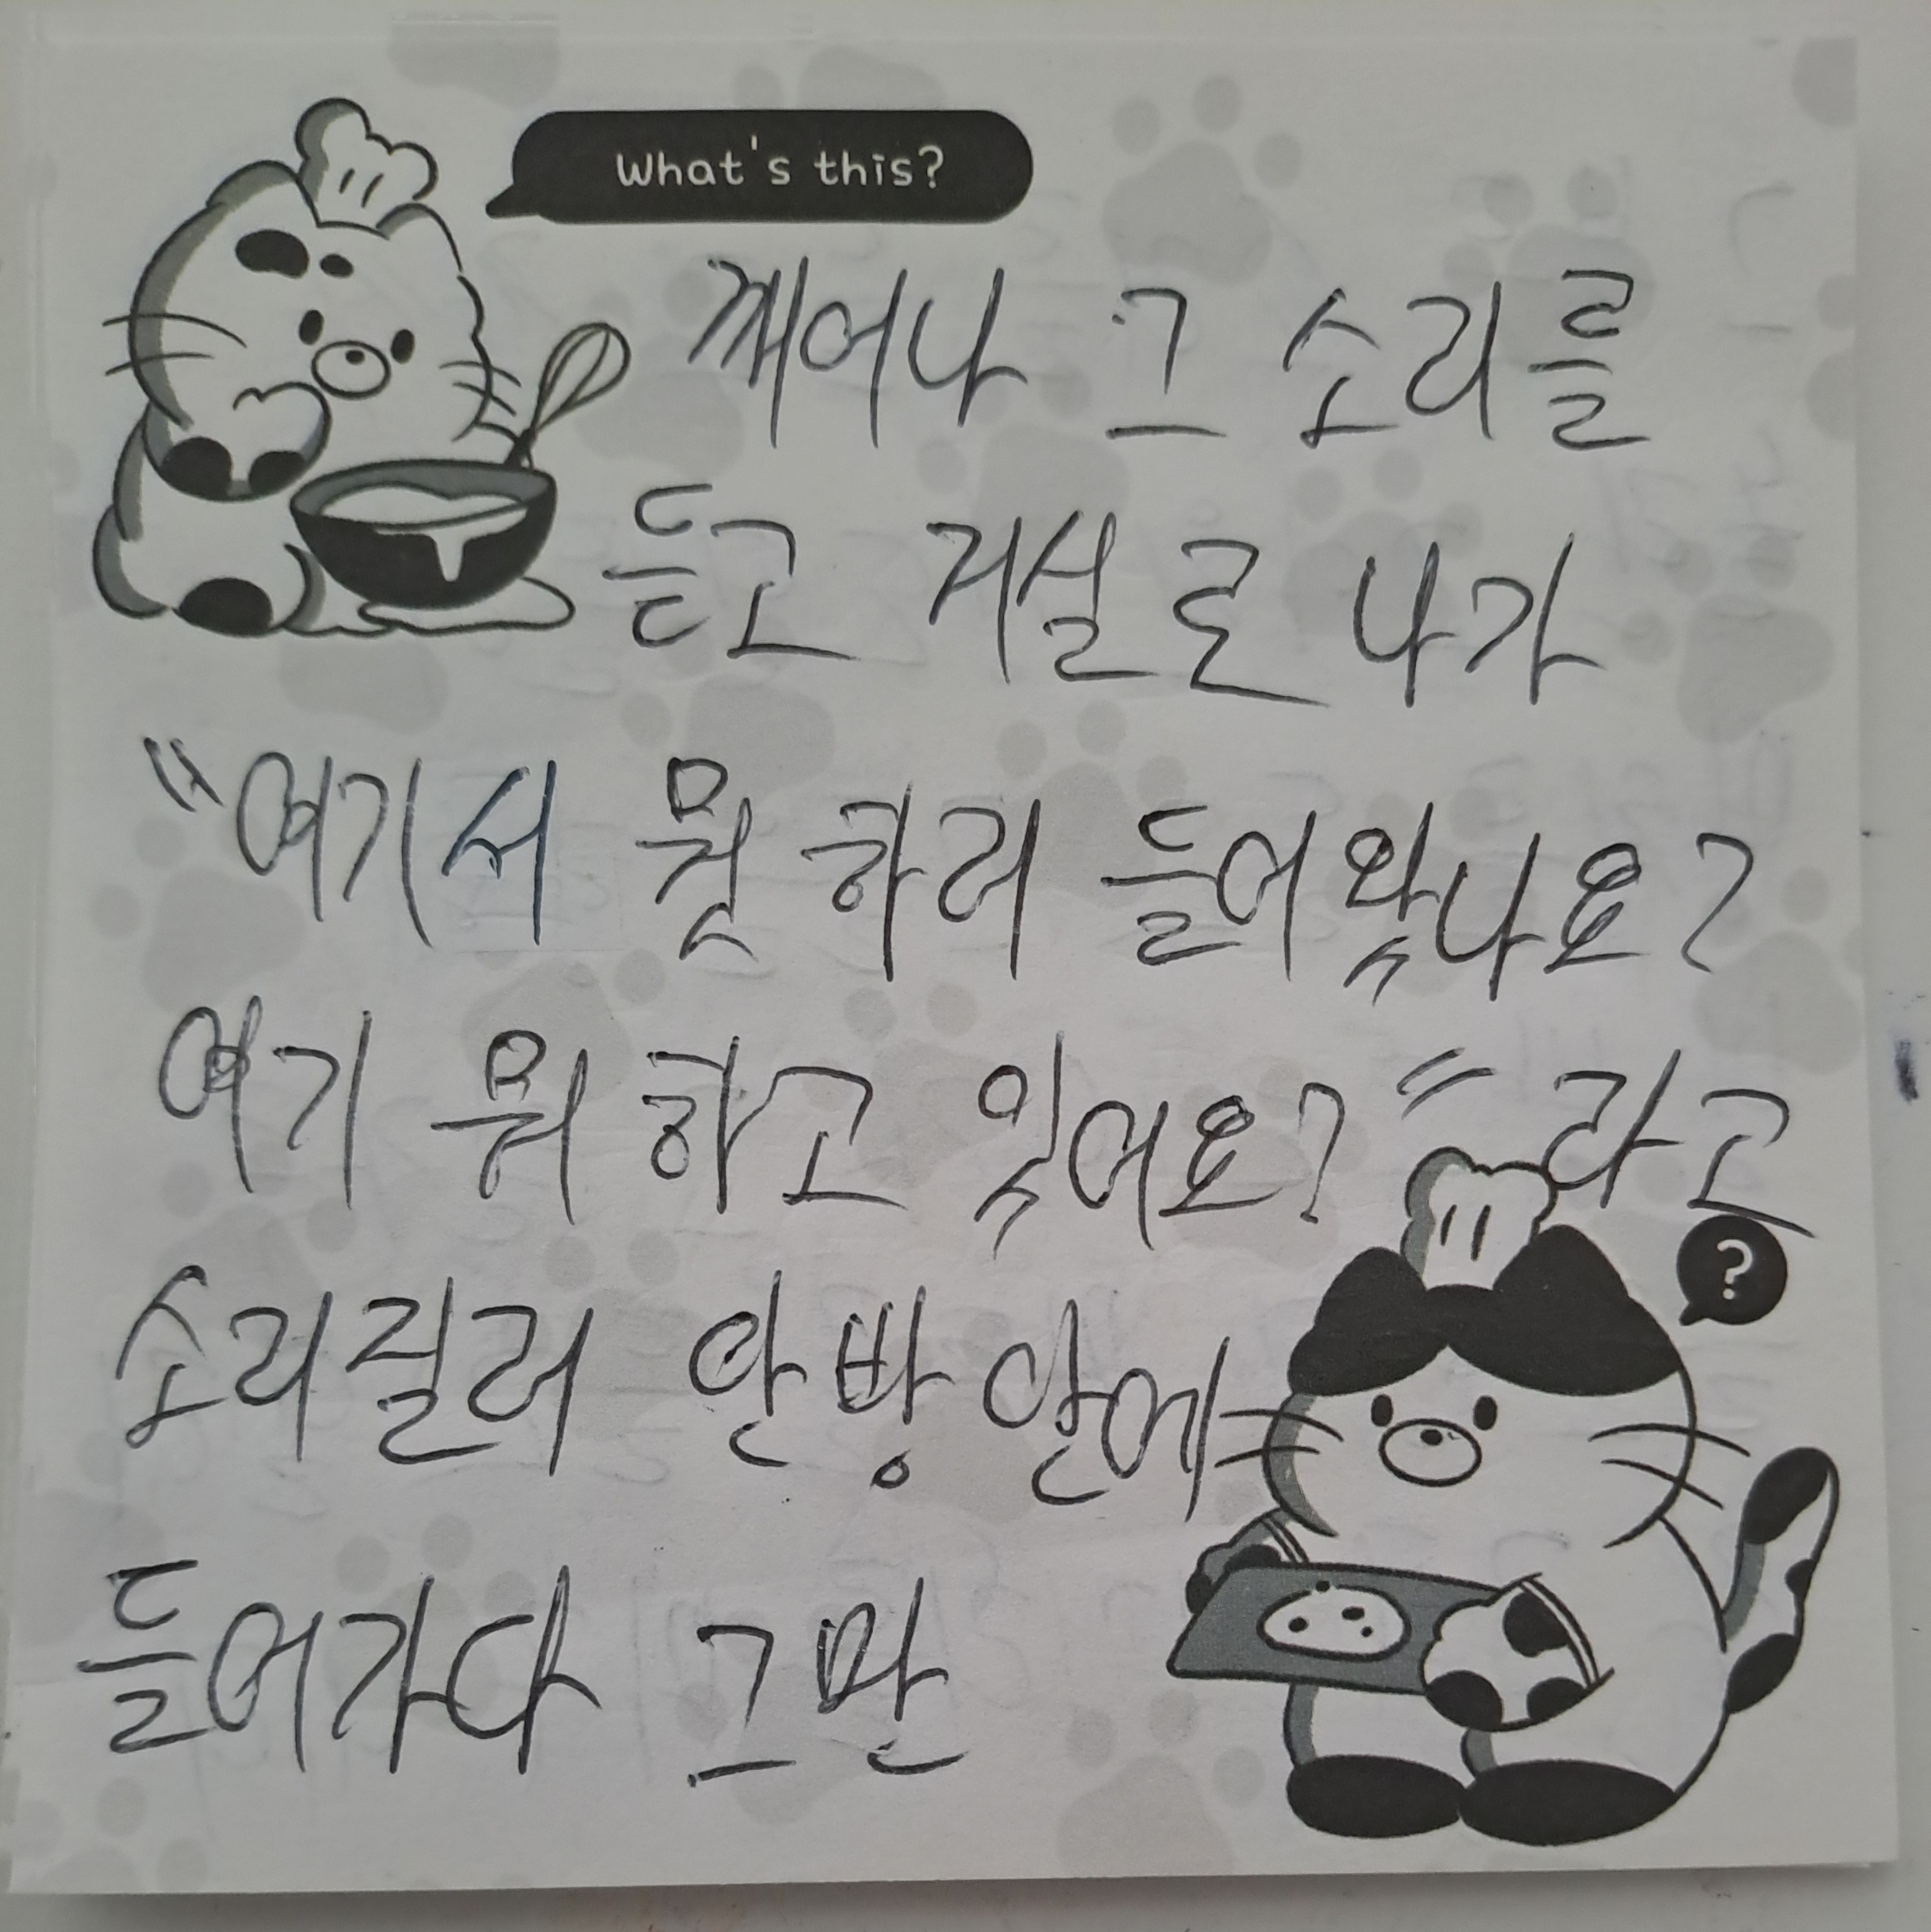 What's this?
깨어나 그 소리를
듣고 거실로 나가
"여기서 뭣하러 들어왓나요?
여기 뭐하고 잇어요?" 라고
?
소리질러 안방 안에
들어가다 그만